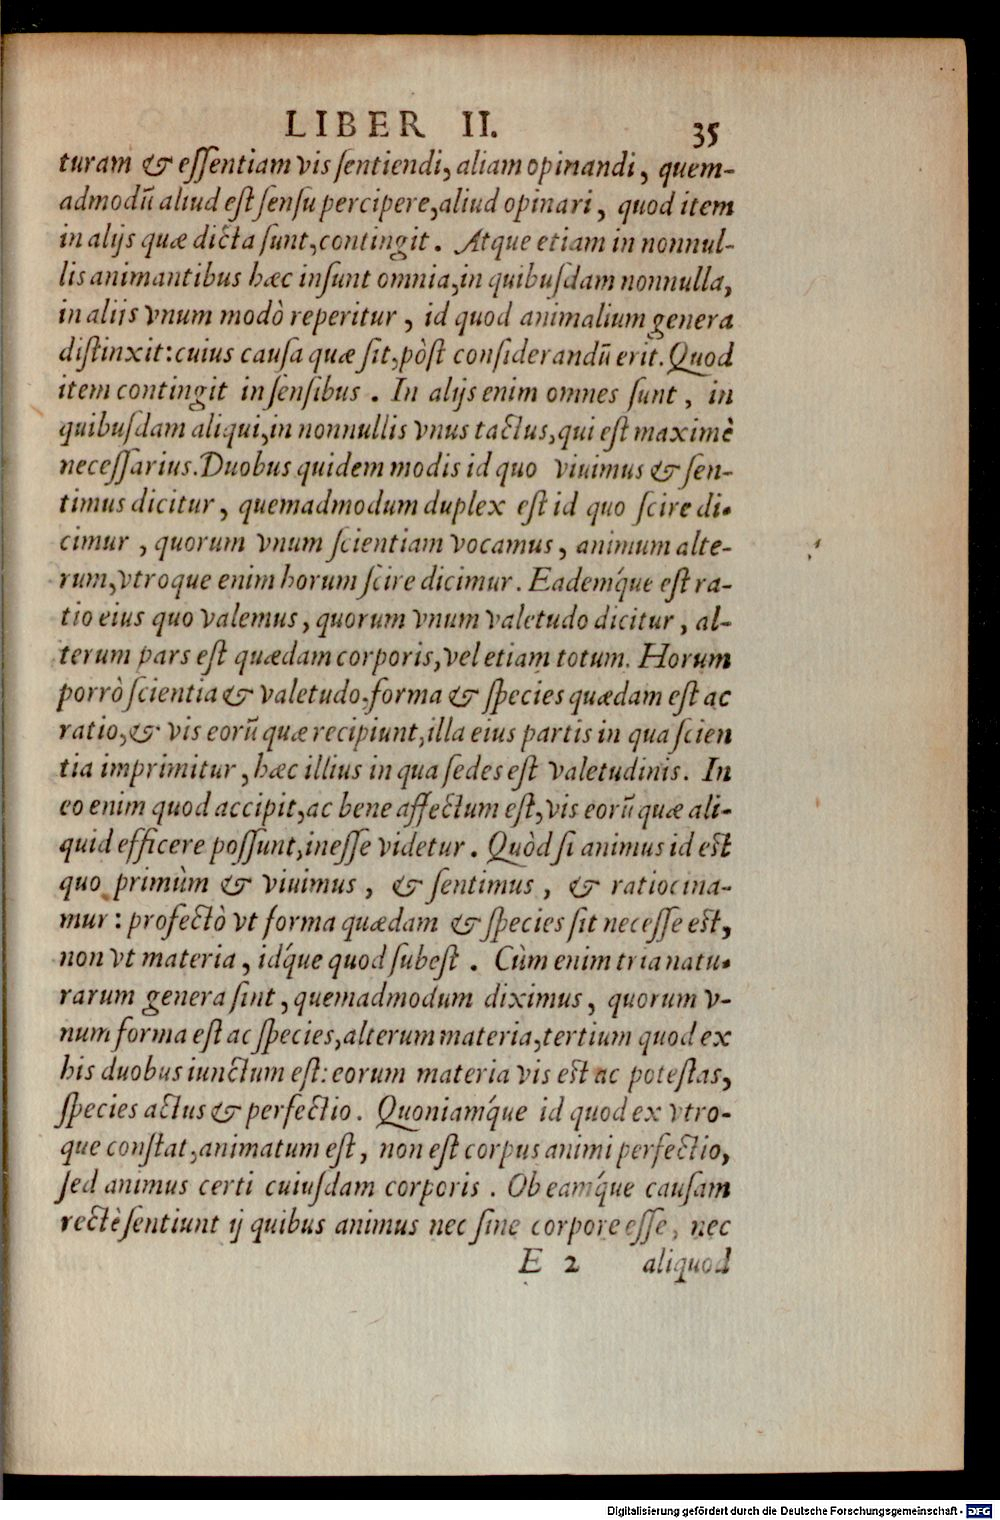 LIBER II. 35
turam & eſſentiam vis ſentiendi, aliam opinandi, quem-
admodū aliud eſt ſenſu percipere, aliud opinari, quod item
in alijs quæ dicta ſunt, contingit. Atque etiam in nonnul-
lis animantibus hæc inſunt omnia, in quibuſdam nonnulla,
in aliis vnum modò reperitur, id quod animalium genera
diſtinxit: cuius cauſa quæ ſit, pòſt conſiderandū erit. Quod
item contingit in ſenſibus. In alijs enim omnes ſunt, in
quibuſdam aliqui, in nonnullis vnus tactus, qui eſt maximè
neceſſarius. Duobus quidem modis id quo viuimus & ſen-
timus dicitur, quemadmodum duplex eſt id quo ſcire di-
cimur, quorum vnum ſcientiam vocamus, animum alte-
rum, vtroque enim horum ſcire dicimur. Eadeḿque eſt ra-
tio eius quo valemus, quorum vnum valetudo dicitur, al-
terum pars eſt quædam corporis, vel etiam totum. Horum
porrò ſcientia & valetudo, forma & ſpecies quædam eſt ac
ratio, & vis eorū quæ recipiunt, illa eius partis in qua ſcien
tia imprimitur, hæc illius in qua ſedes eſt valetudinis. In
eo enim quod accipit, ac bene affectum eſt, vis eorū quæ ali-
quid efficere poſſunt, ineſſe videtur. Quòd ſi animus id eſt
quo primùm & viuimus, & ſentimus, & ratiocina-
mur: profectò vt forma quædam & ſpecies ſit neceſſe eſt,
non vt materia, id́que quod ſubeſt. Cùm enim tria natu-
rarum genera ſint, quemadmodum diximus, quorum v-
num forma eſt ac ſpecies, alterum materia, tertium quod ex
his duobus iunctum eſt: eorum materia vis eſt ac poteſtas,
ſpecies actus & perfectio. Quoniaḿque id quod ex vtro-
que conſtat, animatum eſt, non eſt corpus animi perfectio,
ſed animus certi cuiuſdam corporis. Ob eaḿque cauſam
rectè ſentiunt ij quibus animus nec ſine corpore eſſe, nec
E 2 aliquod
Digitalisierung gefördert durch die Deutsche Forschungsgemeinschaft - DFG